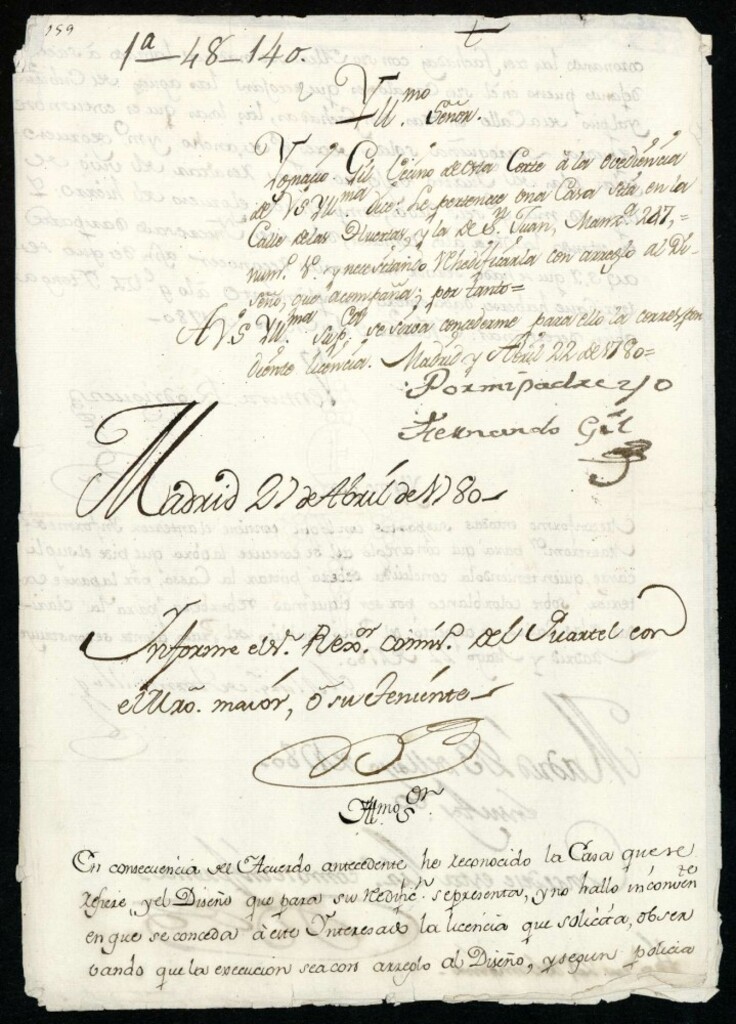 159
1ª-48-140.
Yll.mo Señor.
Ygnacio Gil, vecino de esta Corte à la ovediencia
de V.S. Yll.ma dice: Le pertenece una Casa sita en la
Calle de las Huertas, y la de S.n Juan, Manz.a 247,=
num.o y necesitando Rhedificarla con arreglo al Di-
seño, que acompaña; por tanto=
A V.S. Yll.ma sup.ca se sirva concederme para ello la correspon
diente licencia. Madrid y Abril 22 de 1780=
Por mi padre
Fernando Gil
Madrid 27 de Abril de 1780
Ynforme el S.r Rex.or comis.o del Quartel con
el Mro. maior, ô su theniente
Yllmo S.or
En consecuencia del Acuerdo antecedente he reconocido la Casa que se
refiere, y el Diseño que para su Redific.n se presenta, y no hallo inconven.te
en que se conceda â este Ynteresado la licencia que solicita, obser
vando que la execucion sea con arreglo al Diseño, y segun policia